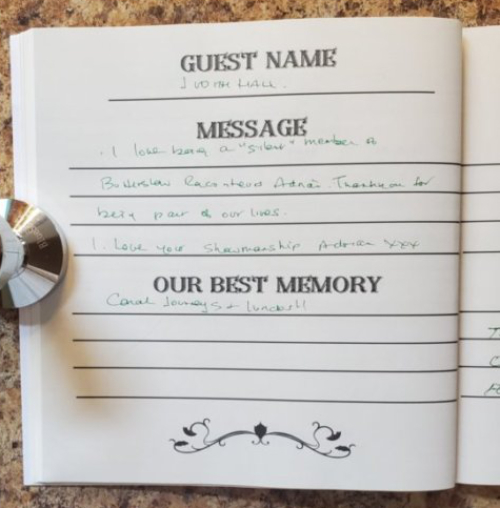 GUEST NAME
JUDITH HALL.
MESSAGE
. I love being a "silent" member of
Raconteurs Adrian. Thankyou for
being part of our lives.
I love your showmanship Adrian xxx
OUR BEST MEMORY
Canal Journeys + lunches!!